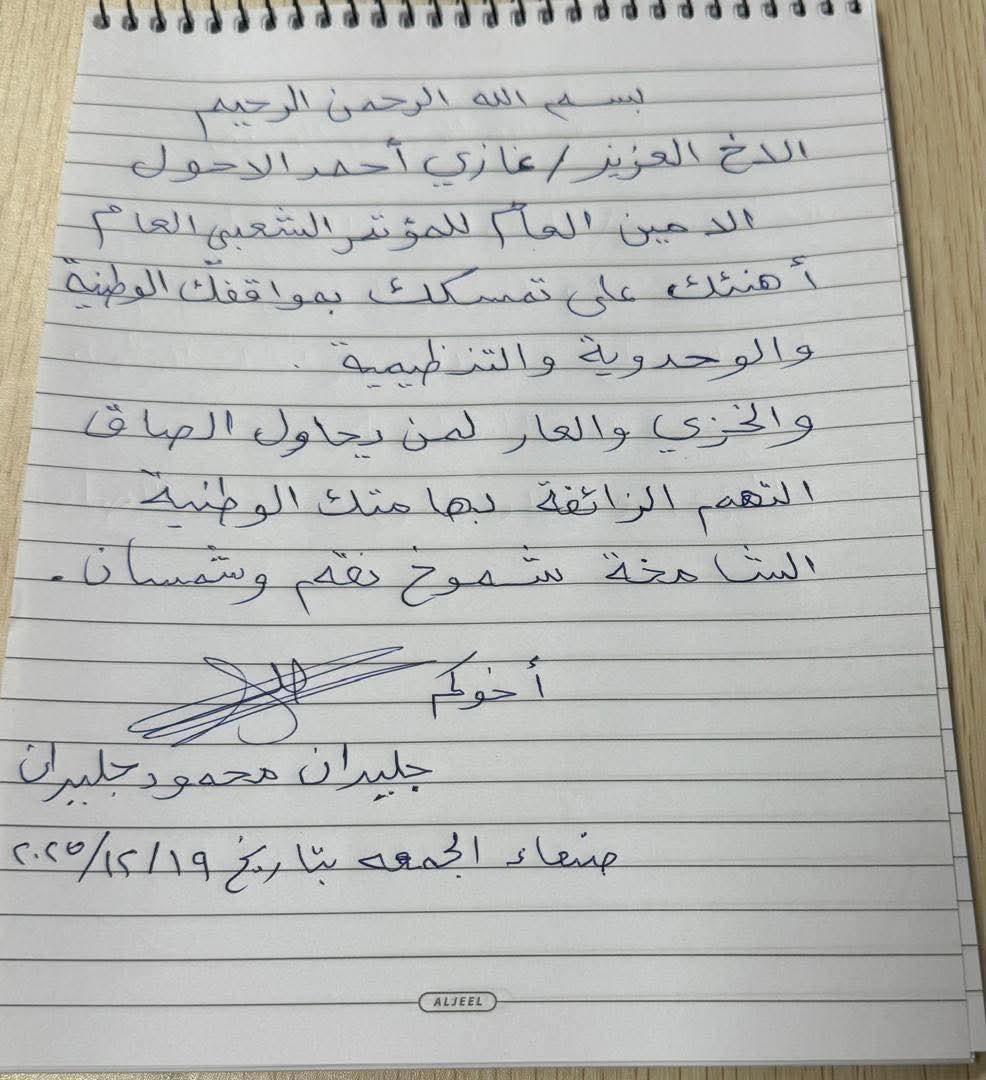 بسم الله الرحمن الرحيم
الاخ العزيز / غازي أحمد الاحول
الامين العام للمؤتمر الشعبي العام
أهنئك على تمسكك بمواقفك الوطنية
والوحدوية والتنظيمية .
والخزي والعار لمن يحاول الصاق
التهم الزائفة بهامتك الوطنية
الشامخة شموخ نقم وشمسان .
أخوكم
جليدان محمود جليدان
صنعاء الجمعه بتاريخ ١٩/١٢/٢٠٢٥
ALJEEL